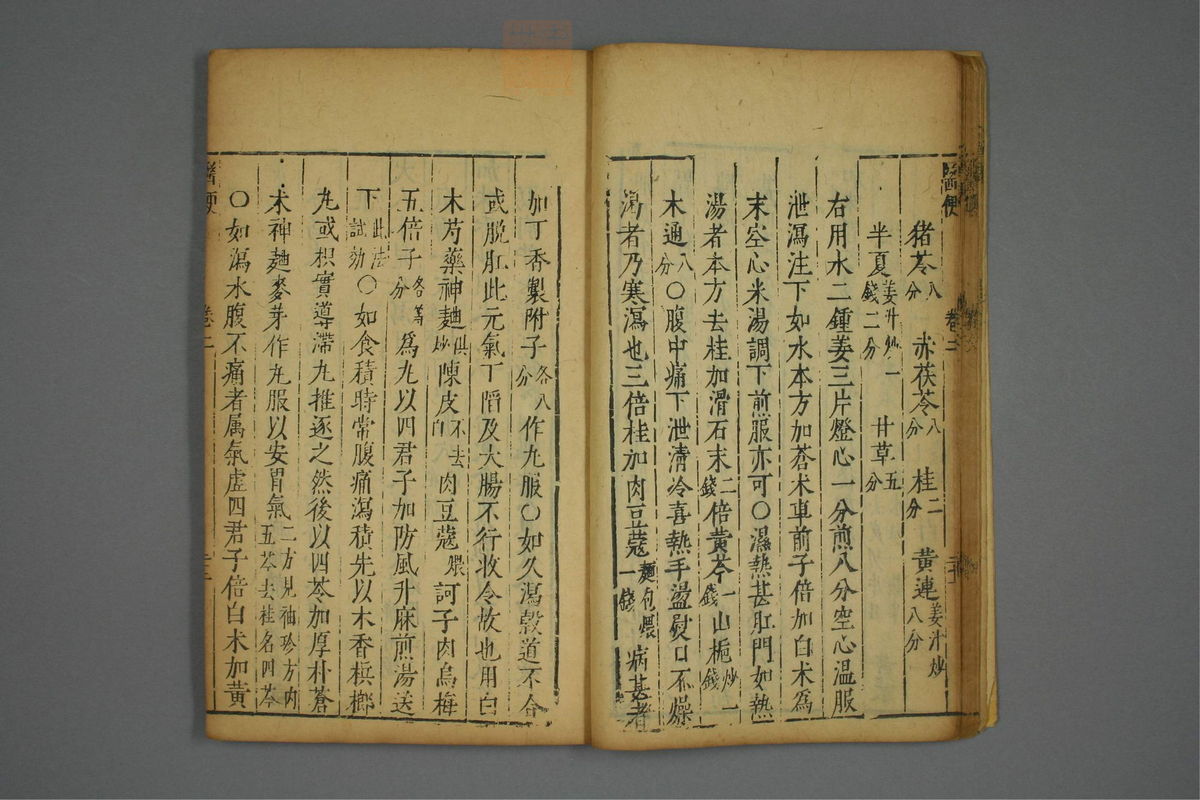 醫便
卷二
二十二
猪苓八分 赤茯苓八分 桂二分 黄連姜汁炒八分
半夏姜汁炒一錢二分 甘草五分
右用水二鍾姜三片燈心一分煎八分空心温服
泄瀉注下如水本方加蒼术車前子倍加白术為
末空心米湯調下煎服亦可○濕熱甚肛門如熱
湯者本方去桂加滑石末二錢倍黄芩一錢山梔炒一錢
木通八分○腹中痛下泄清冷喜熱手盪熨口不燥
渴者乃寒瀉也三倍桂加肉豆蔻麵包煨一錢病甚者
加丁香製附子各八分作丸服○如久瀉穀道不合
或脱肛此元氣下陷及大腸不行收令故也用白
术芍藥神麯俱炒陳皮不去白肉豆蔻煨訶子肉烏梅
五倍子各等分為丸以四君子加防風升麻煎湯送
下此法試効○如食積時常腹痛瀉積先以木香槟榔
丸或枳實導滯丸推逐之然後以四苓加厚朴蒼
术神麯麥芽作丸服以安胃氣二方見袖珍方内五苓去桂名四苓
○如瀉水腹不痛者属氣虚四君子倍白术加黄
醫便
卷二